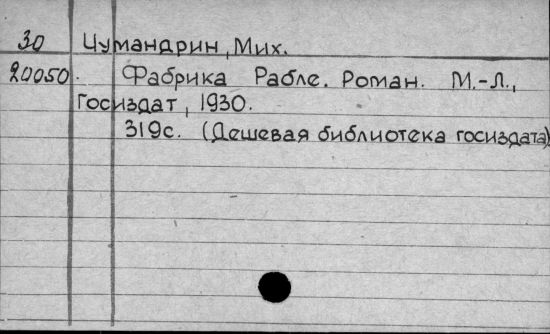 30 Чумандрин, Мих.
20050. Фабрика Рабле. Роман. М.-Л.,
Госиздат, 1930.
319с. (Дешевая библиотека госиздата)